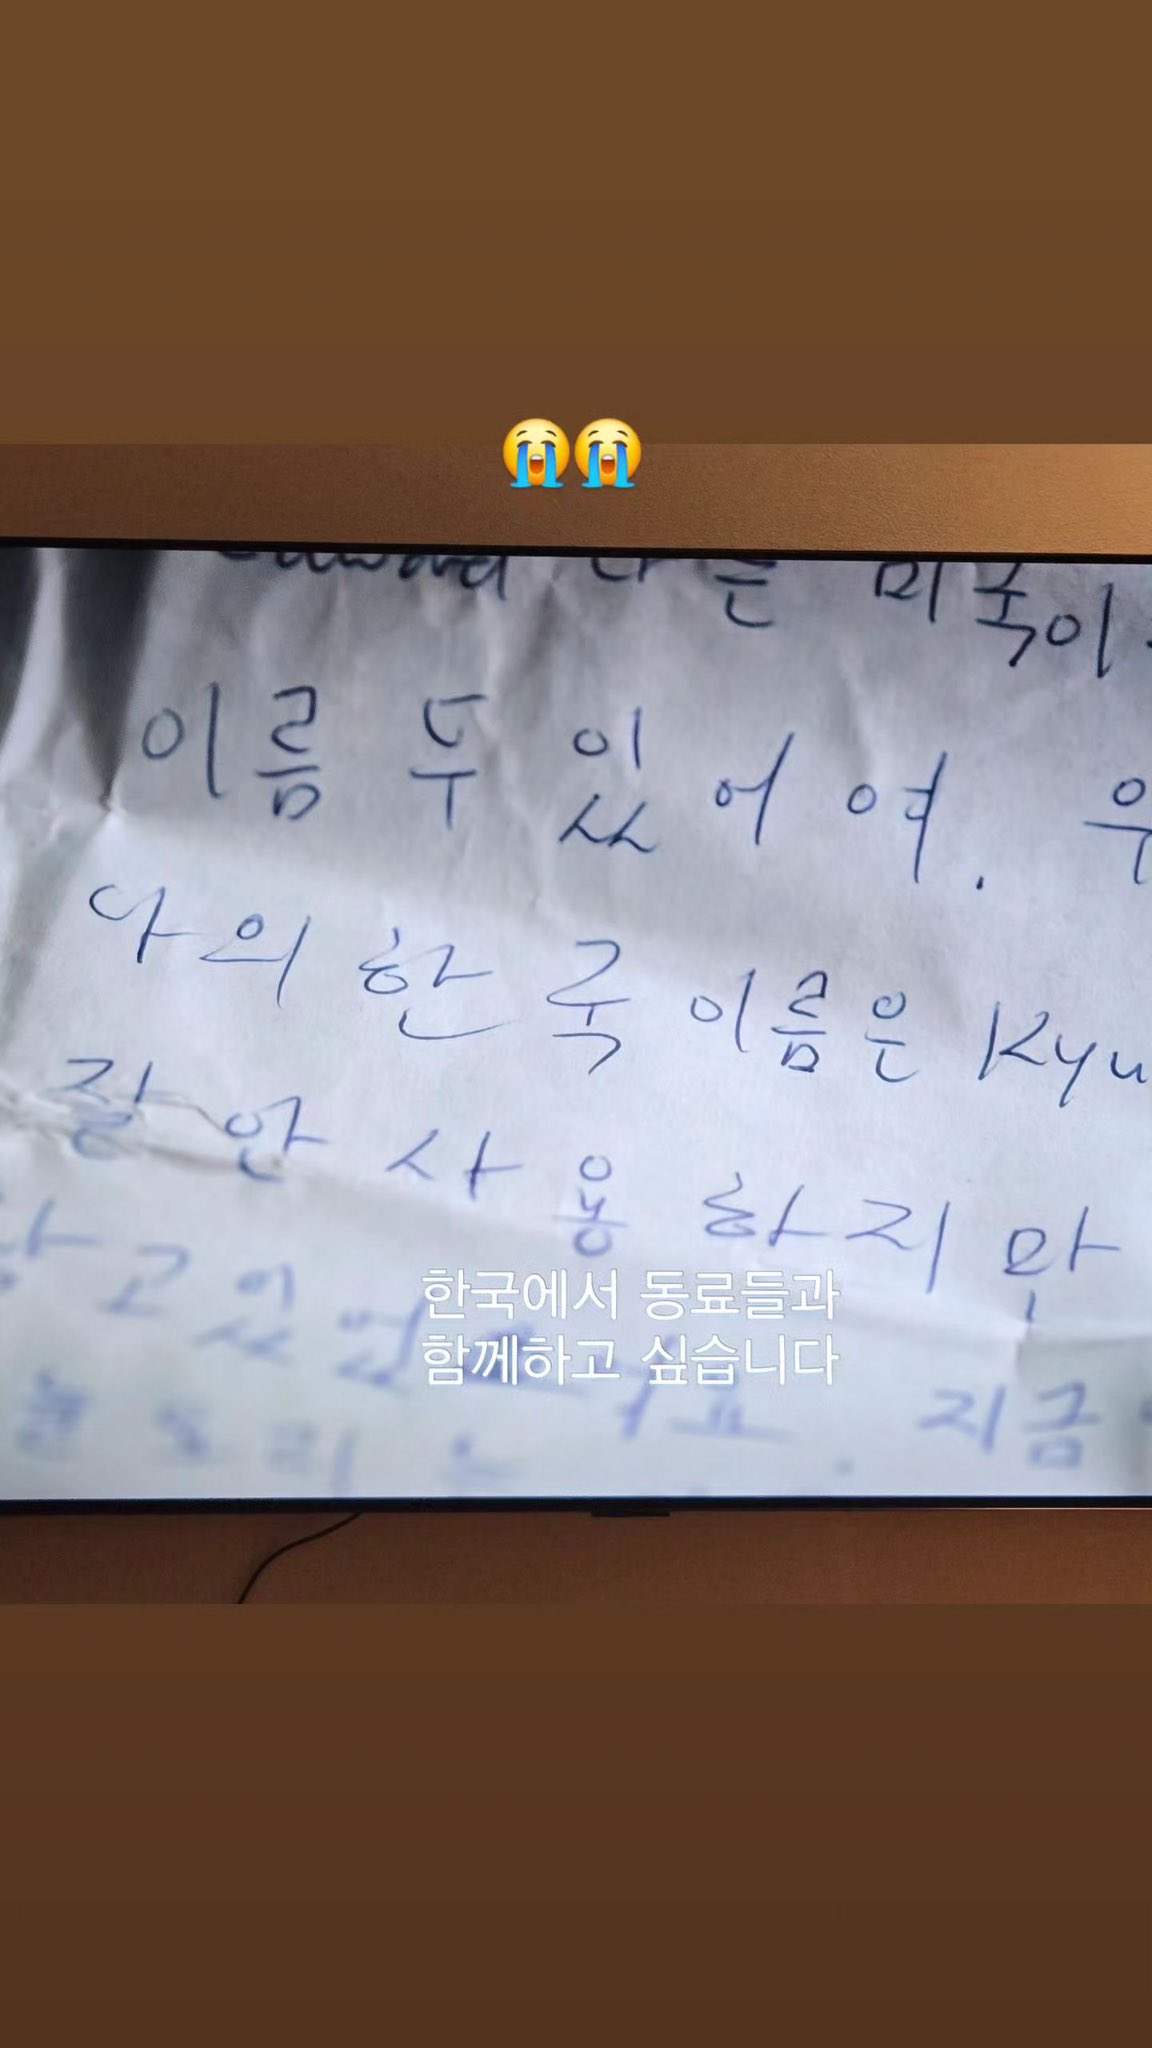 😭😭
나는 미국이
이름 두 있어여. 우
나의 한국 이름은 Kyu
잘 안 사용 하지만
고 있
한국에서 동료들과
함께하고 싶습니다
지금